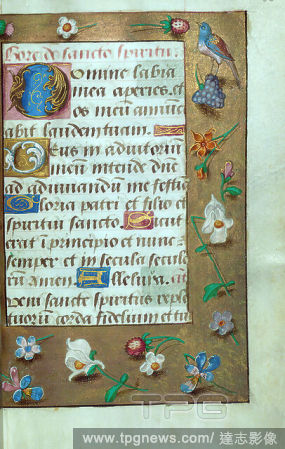 Hore de sancto spiritu.
Domine labia
mea aperies. et
os meū annūci
abit laudem tuam.
Deus in adiutoriū
meū intende dn̄e
ad adiuuandū me festia
Gloria patri et filio et
spiritui sancto Sicut
erat ī principio et nunc
semper et in secula seculo
rū amen. Alleluia. an
veni sancte spiritus reple
tuorū corda fidelium et tu
TPG
www.tpgnews.com/達志影像